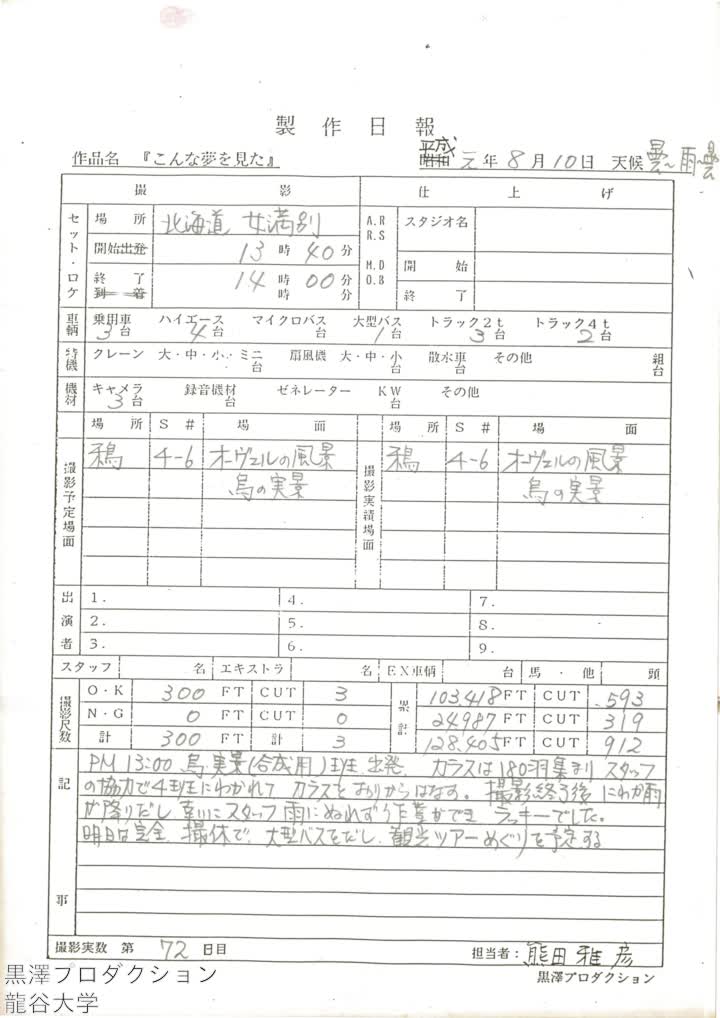 製作日報
作品名 『こんな夢を見た』 平成 昭和 元年 8月 10日 天候 曇〜雨〜曇
撮影 仕上げ
セット・ロケ 場所 北海道 女満別 A.R R.S スタジオ名
開始出発 13時 40分 M.D O.B 開始
終了 14時 00分 終了
到着 時 分
車輌 乗用車 3台 ハイエース 4台 マイクロバス 台 大型バス 1台 トラック2t 3台 トラック4t 2台
特機 クレーン 大・中・小・ミニ 台 扇風機 大・中・小 台 散水車 台 その他 組 台
機材 キャメラ 3台 録音機材 台 ゼネレーター KW 台 その他
場所 S# 場面 場所 S# 場面
撮影予定場面 鴉 4-6 オーヴェルの風景 撮影実績場面 鴉 4-6 オーヴェルの風景
烏の実景 烏の実景
出演者 1. 4. 7.
2. 5. 8.
3. 6. 9.
スタッフ 名 エキストラ 名 EX車輌 台 馬・他 頭
撮影尺数 O・K 300 FT CUT 3 累計 103.418 FT CUT 593
N・G 0 FT CUT 0 24.987 FT CUT 319
計 300 FT 計 3 128.405 FT CUT 912
記事 PM 13:00 烏実景(合成用)班 出発 カラスは180羽集まり スタッフ
の協力で4班にわかれて カラスをおりからはなす。撮影終了後 にわか雨
が降りだし 幸いにスタッフ 雨にぬれず作業ができ ラッキーでした。
明日は完全 撮休で、大型バスをだし、観光ツアーめぐりを予定する
撮影実数 第 72 日目 担当者: 熊田雅彦
黒澤プロダクション
黒澤プロダクション
龍谷大学